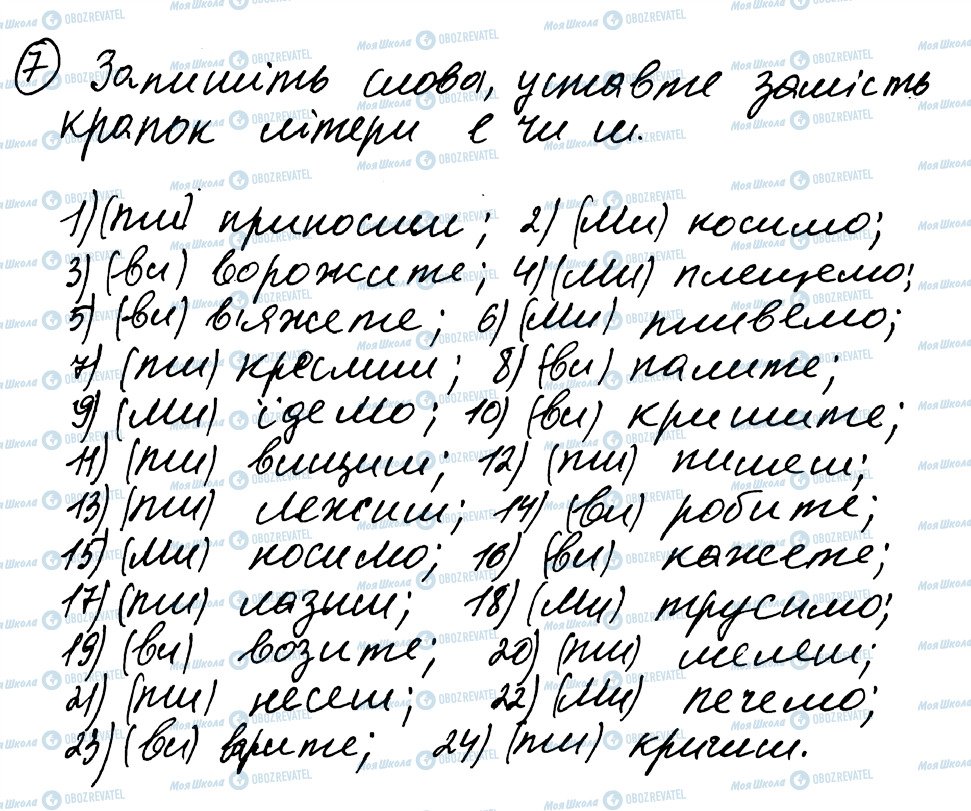 7 Запишіть слова, уставте замість
крапок літери е чи и.
1) (ти) приносиш; 2) (ми) косимо;
3) (ви) ворожите; 4) (ми) плещемо;
5) (ви) в'яжете; 6) (ми) пливемо;
7) (ти) креслиш; 8) (ви) палите;
9) (ми) їдемо; 10) (ви) кришите;
11) (ти) вищиш; 12) (ти) пилеш;
13) (ти) лежиш; 14) (ви) робите;
15) (ми) носимо; 16) (ви) кажете;
17) (ти) лазиш; 18) (ми) трусимо;
19) (ви) возите; 20) (ти) мелеш;
21) (ти) несеш; 22) (ми) печемо;
23) (ви) варите; 24) (ти) кричиш.